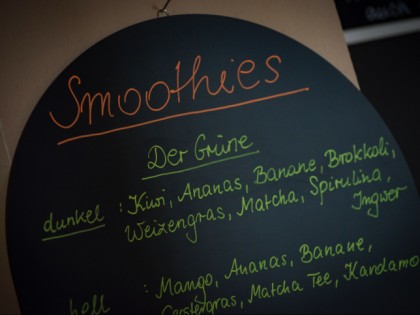 Smoothies
Der Grüne
dunkel : Kiwi, Ananas, Banane, Brokkoli,
Weizengras, Matcha, Spirulina,
Ingwer
hell : Mango, Ananas, Banane,
Gerstengras, Matcha Tee, Kardamo